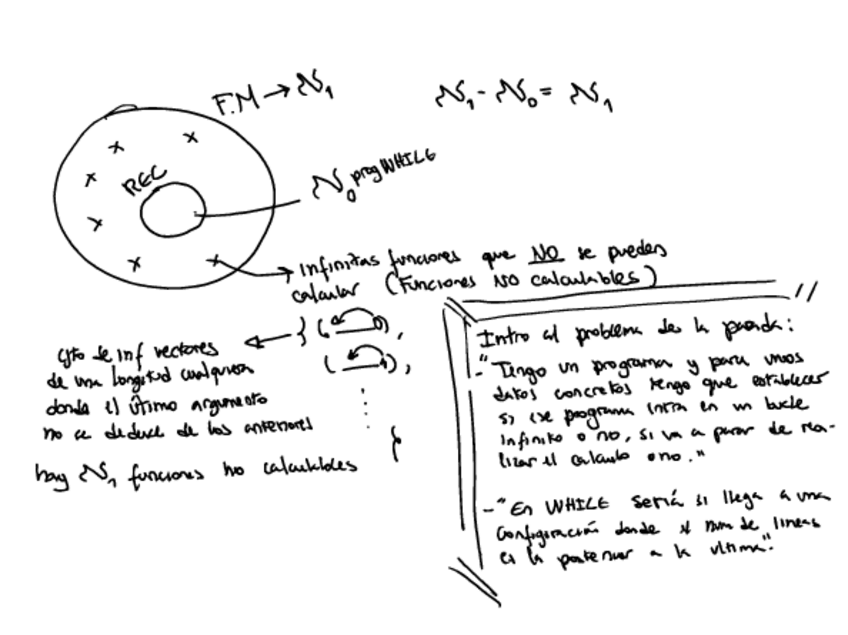 F.M → ℵ₁
ℵ₁ - ℵ₀ = ℵ₁
REC
ℵ₀ prog WHILE
infinitas funciones que NO se pueden
calcular (Funciones NO calculables)
cjto de inf vectores
de una longitud cualquiera
donde el último argumento
no se deduce de los anteriores
hay ℵ₁ funciones no calculables
Intro al problema de la parada:
- "Tengo un programa y para unos
datos concretos tengo que establecer
si ese programa entra en un bucle
infinito o no, si va a parar de rea-
lizar el calculo o no."
- "En WHILE sería si llega a una
configuración donde el num de lineas
es la posterior a la ultima".